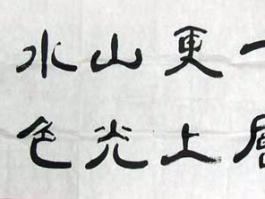 水色
山光
更上
一層